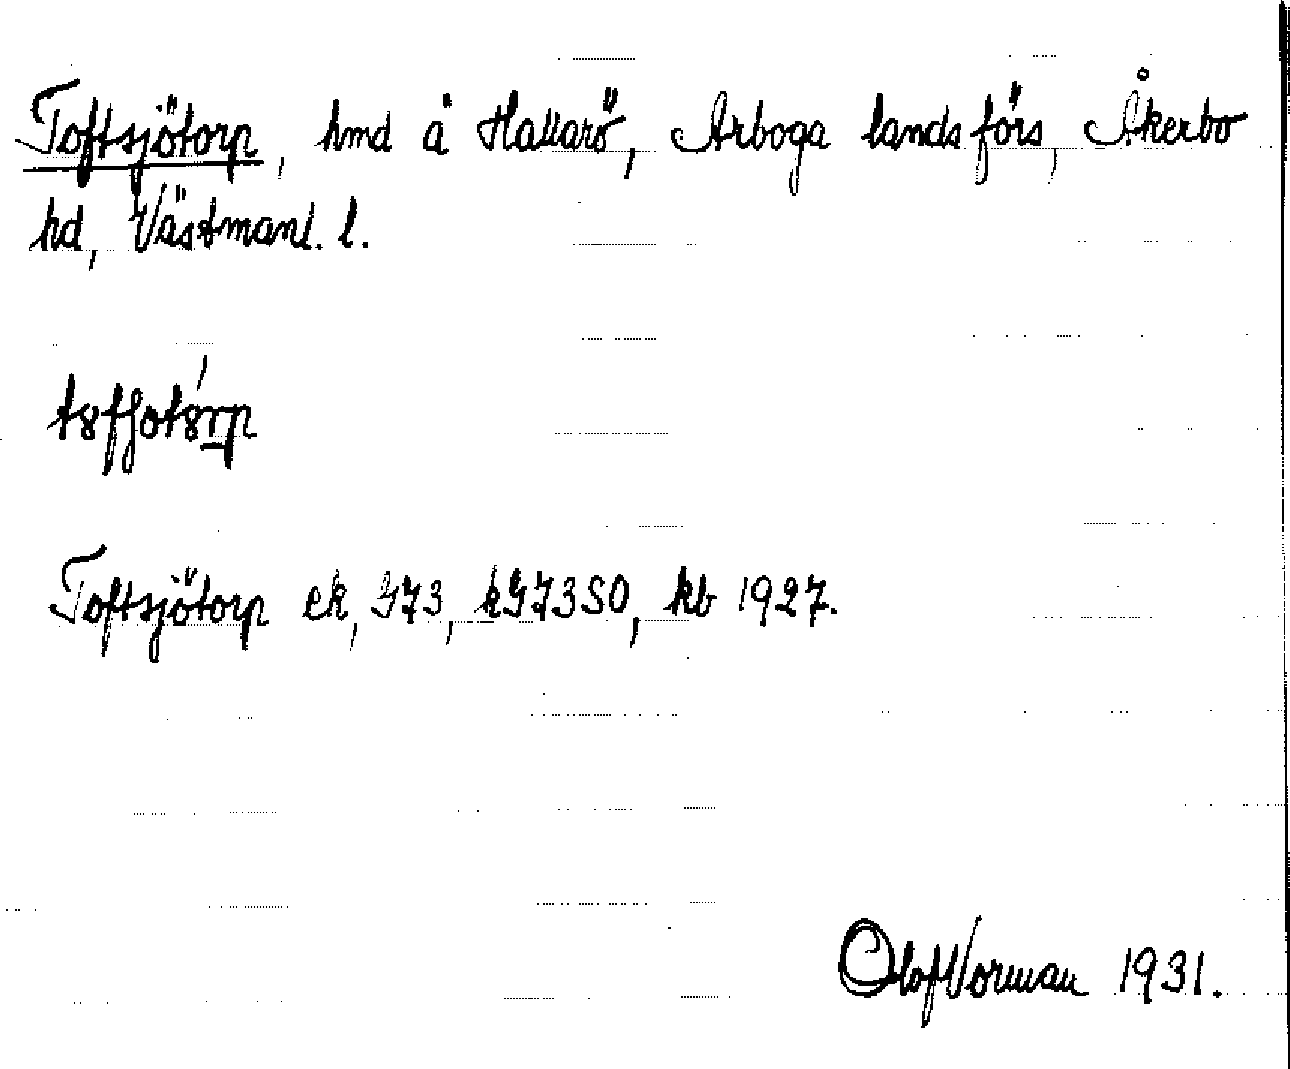 Toftsjötorp, hmd å Hallarö, Arboga landsförs, Åkerbo
hd, Västmanl. l.
Toftsjötorp ek, G73, kG73SO, kb 1927.
Olof Vorman 1931.